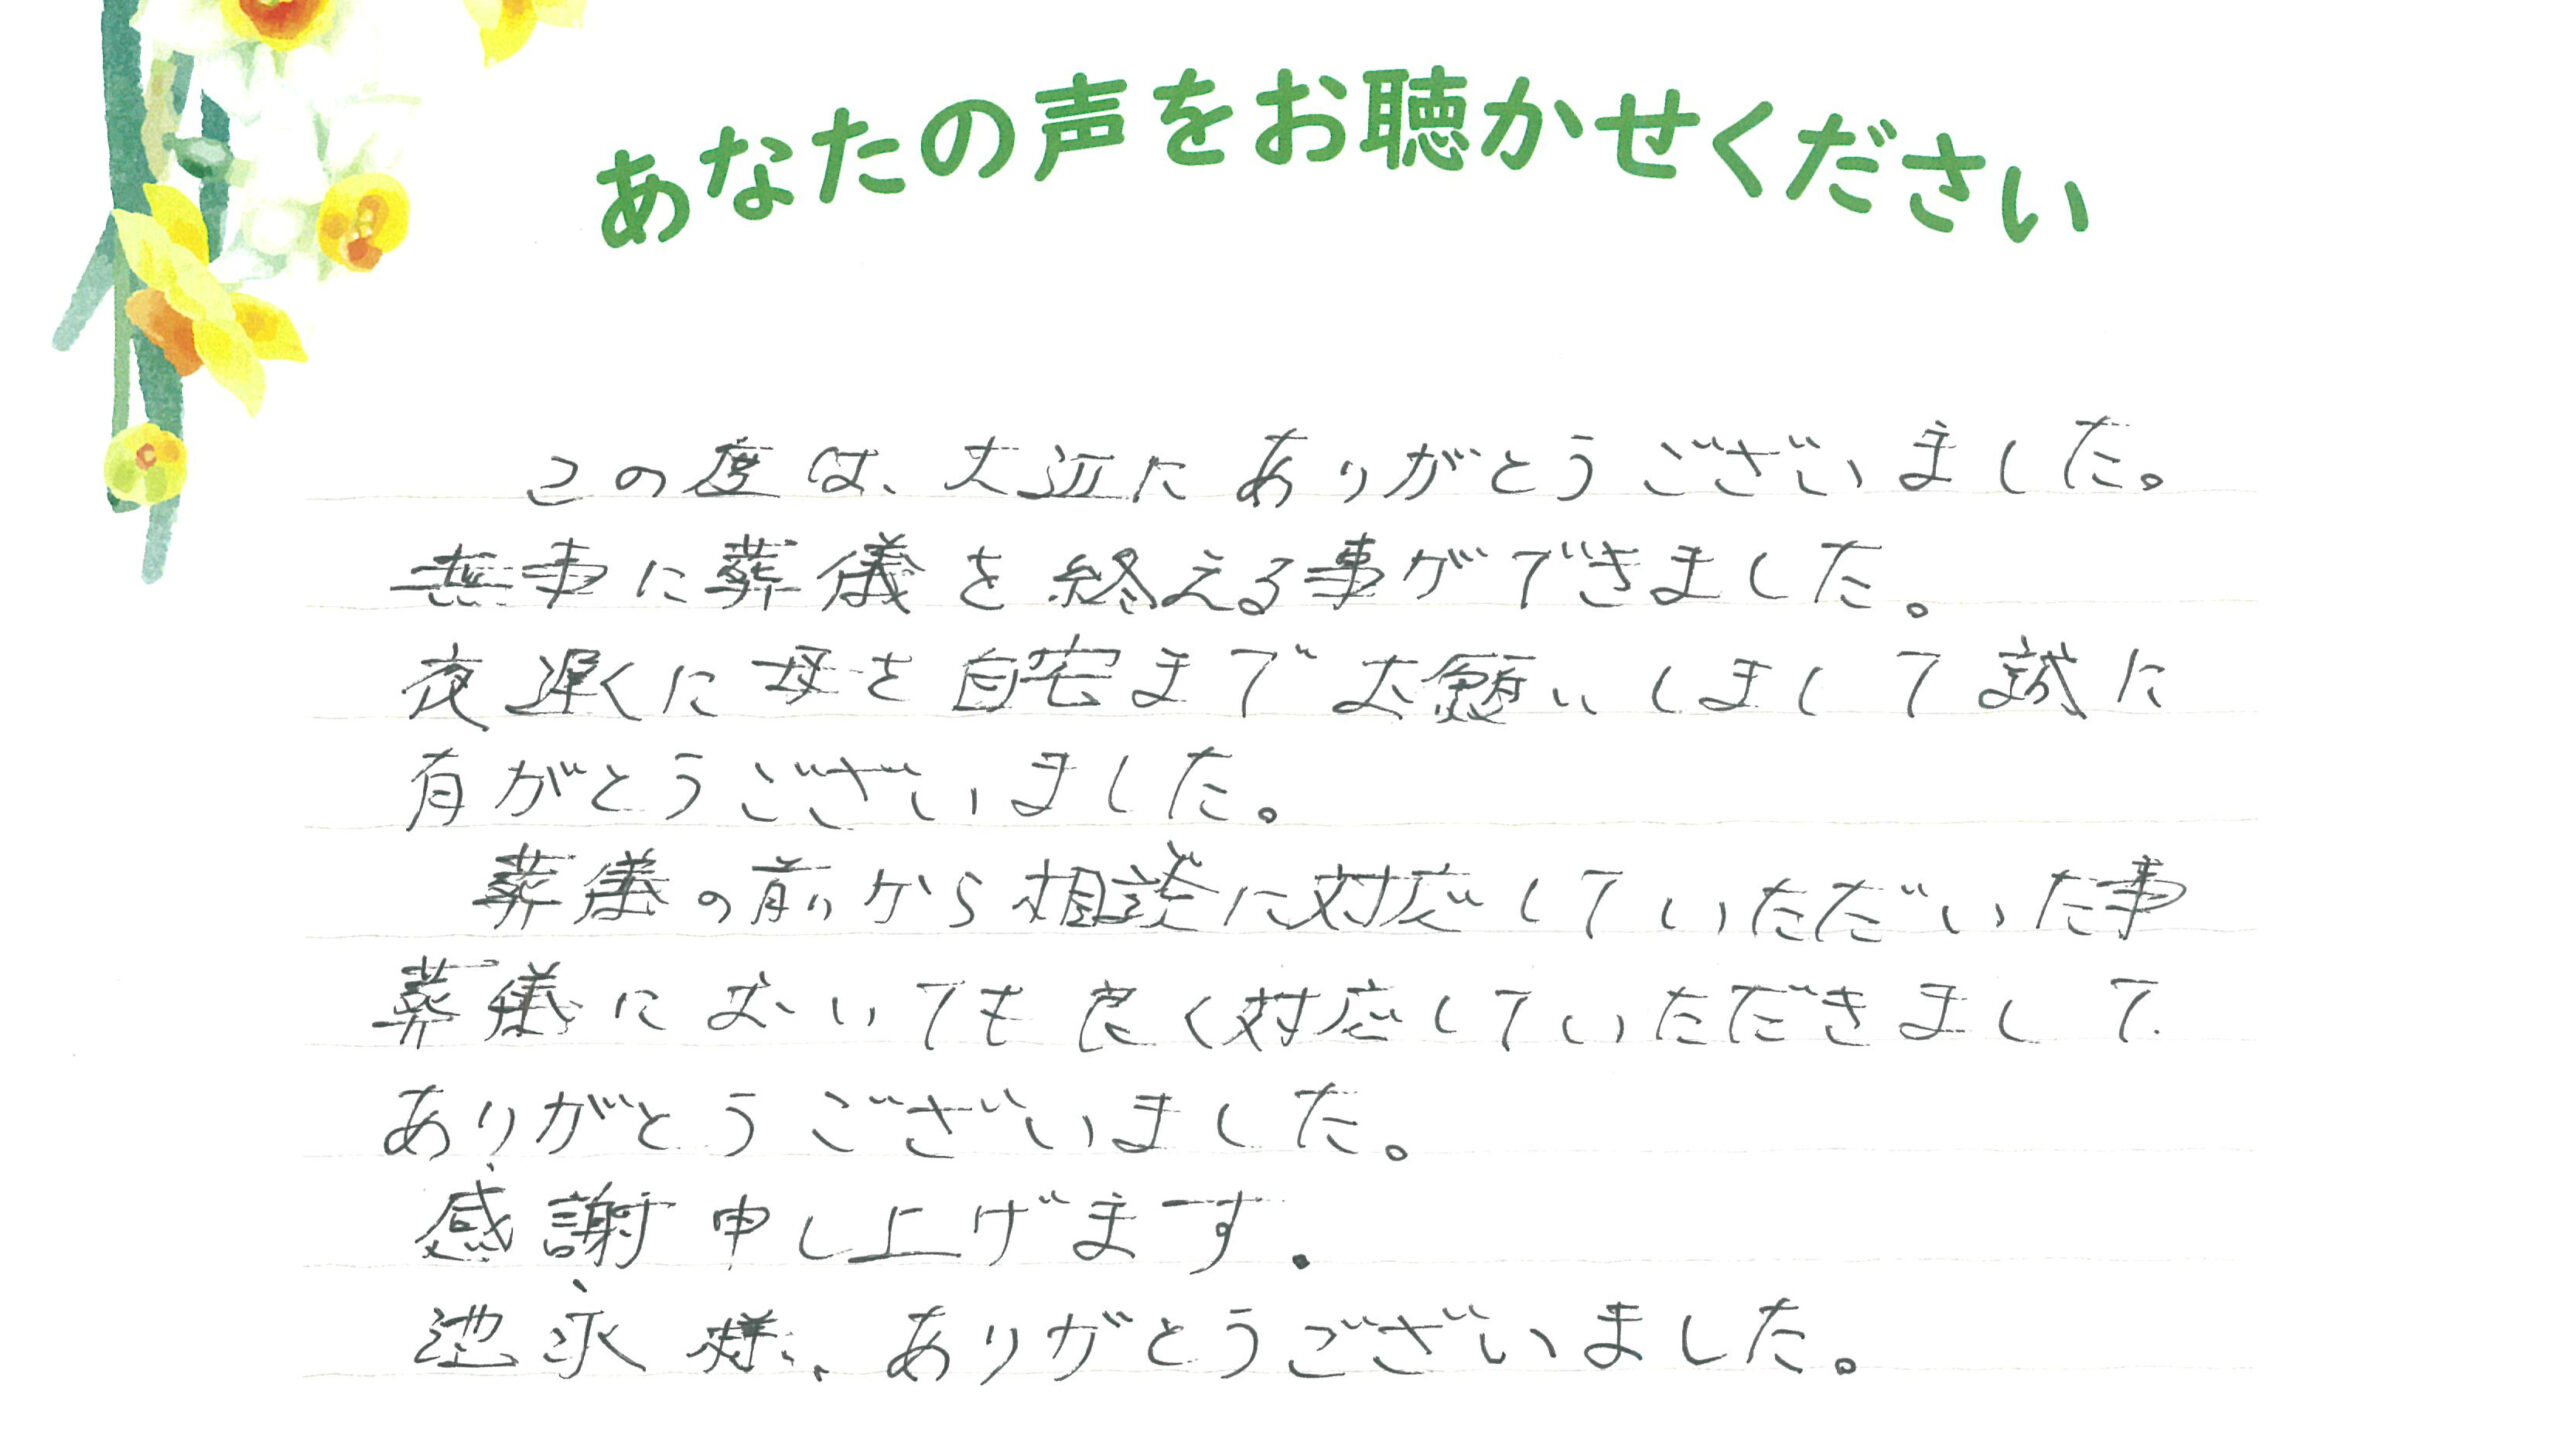 あなたの声をお聴かせください
この度は、大辺に ありがとうございました。
無事に葬儀を終える事ができました。
夜遅くに母を自宅までお願いしまして誠に
有がとうございました。
葬儀の前から相談に対応していただいた事
葬儀においても良く対応していただきまして
ありがとうございました。
感謝申し上げます.
池永様、ありがとうございました。